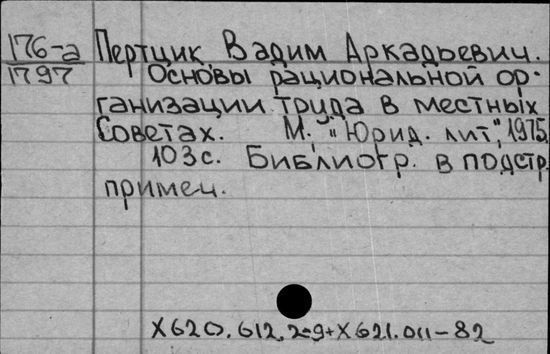 176-а Пертцик, Вадим Аркадьевич.
1797 Основы рациональной ор-
ганизации труда в местных
Советах. М., "Юрид. лит", 1975
103 с. Библиогр. в подстр.
примеч.
Х620.612.2-9+Х621.011-82